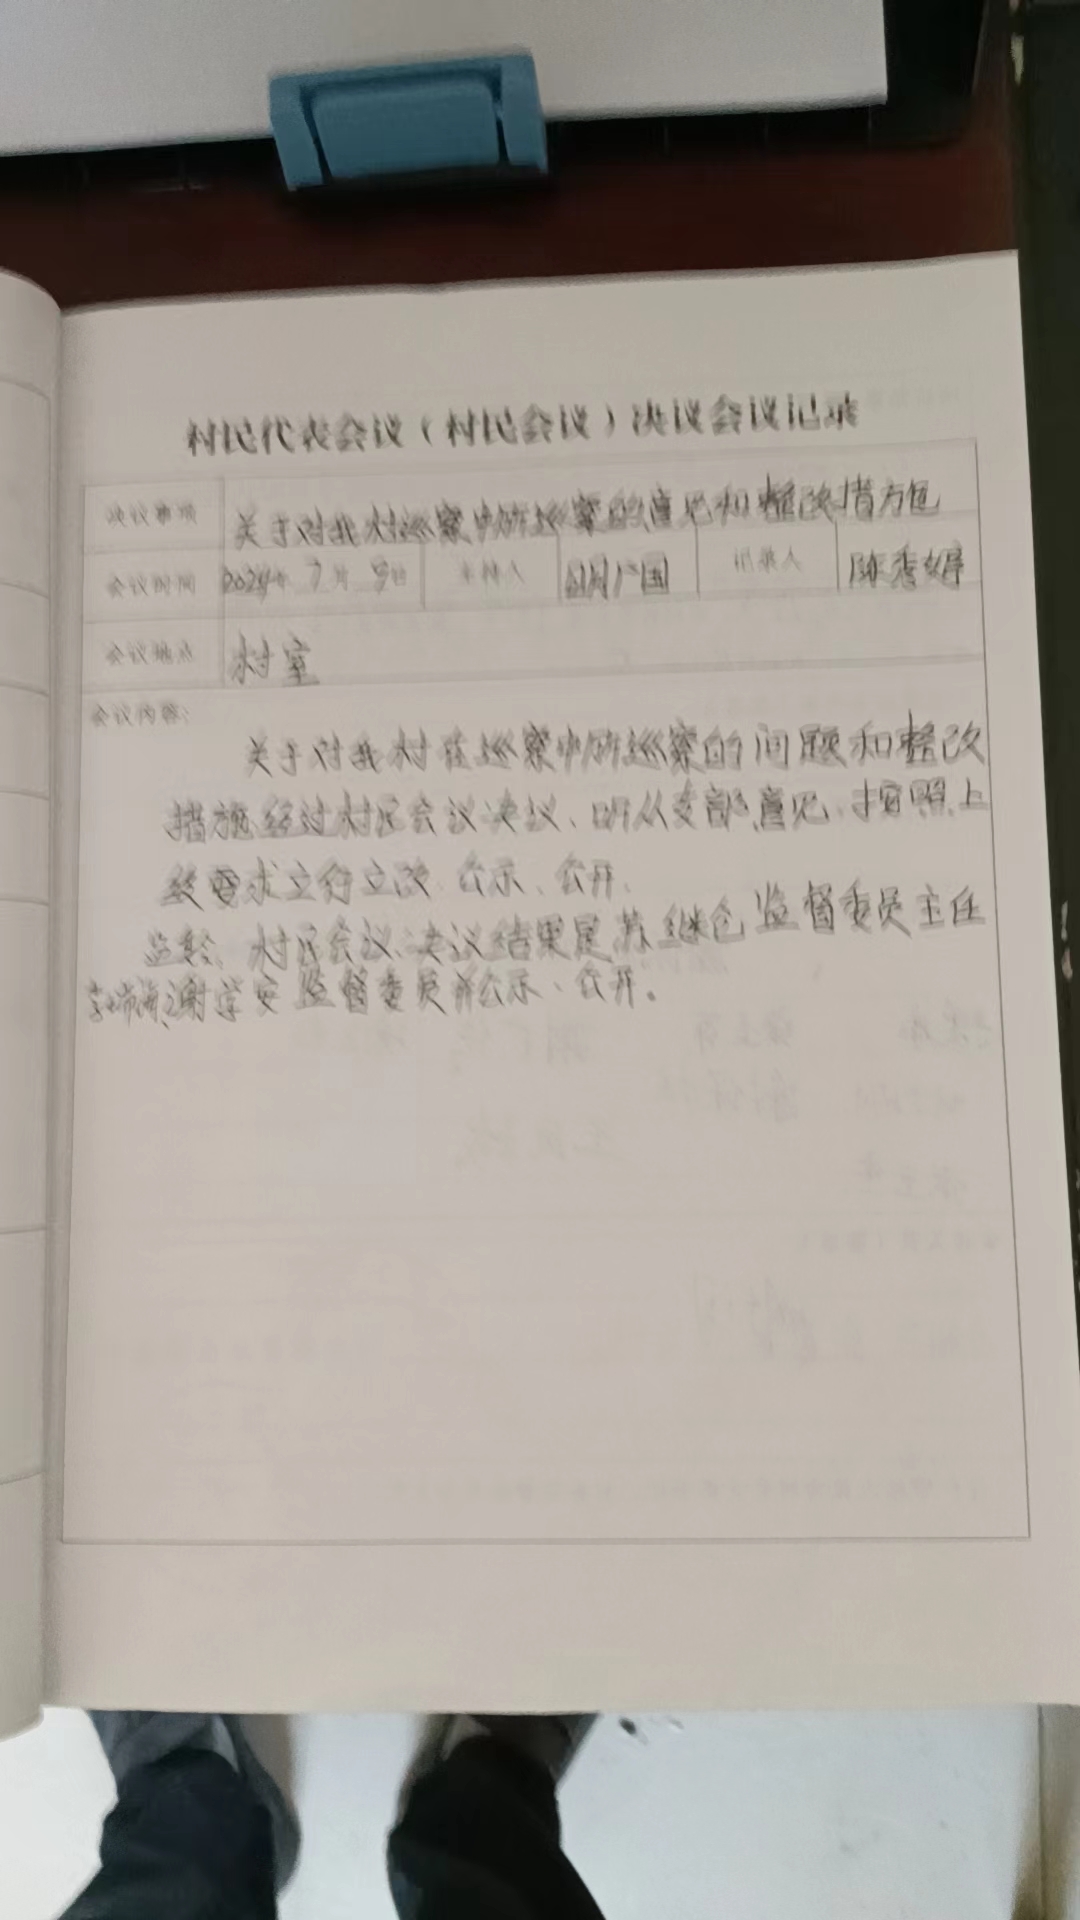 村民代表会议（村民会议）决议会议记录
决议事项 关于对我村巡察中所巡察的意见和整改措方包
会议时间 2024年 7月 9日 主持人 国 记录人 陈秀婷
会议地点 村室
会议内容：
关于对我村在巡察中所巡察的问题和整改
措施经过村民会议决议、听从支部意见、按照上
级要求立行立改、公示、公开、
村民会议、决议结果是苏继仓监督委员主任
谢学安监督委员并公示、公开。